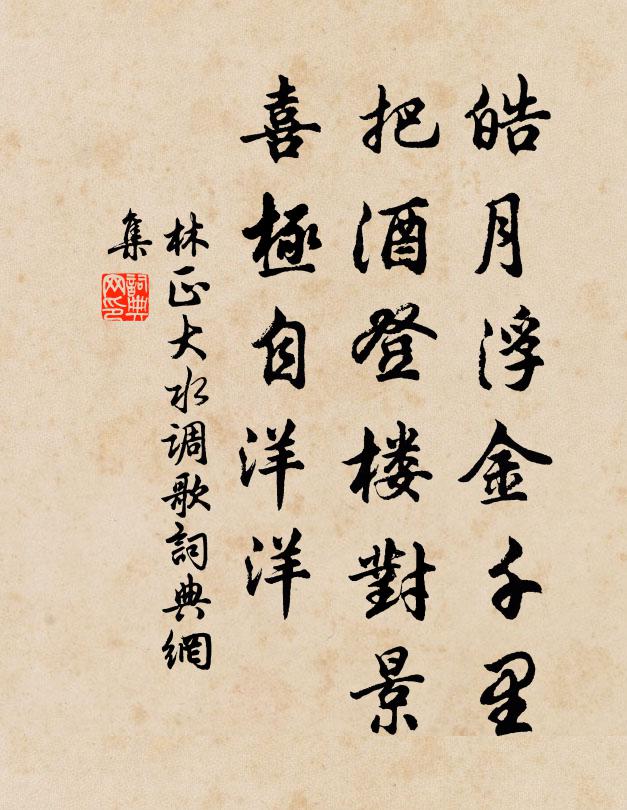 皓月浮金千里
把酒登楼對景
喜極自洋洋
林正大水调歌詞典網
集
詞典
网印